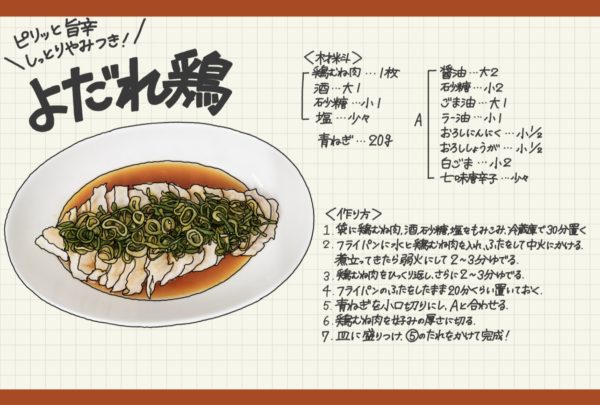 ピリッと旨辛
\しっとりやみつき!/
よだれ鶏
<材料>
鶏むね肉…1枚
酒…大1
砂糖…小1
塩…少々
青ねぎ…20g
A
醤油…大2
砂糖…小2
ごま油…大1
ラー油…小1
おろしにんにく…小1/2
おろししょうが…小1/2
白ごま…小2
七味唐辛子…少々
<作り方>
1. 袋に鶏むね肉、酒、砂糖、塩をもみこみ、冷蔵庫で30分置く
2. フライパンに水と鶏むね肉を入れ、ふたをして中火にかける.
煮立ってきたら弱火にして2~3分ゆでる.
3. 鶏むね肉をひっくり返し、さらに2~3分ゆでる.
4. フライパンのふたをしたまま20分くらい置いておく.
5. 青ねぎを小口切りにし、Aと合わせる.
6. 鶏むね肉を好みの厚さに切る.
7. 皿に盛りつけ、⑤のたれをかけて完成!